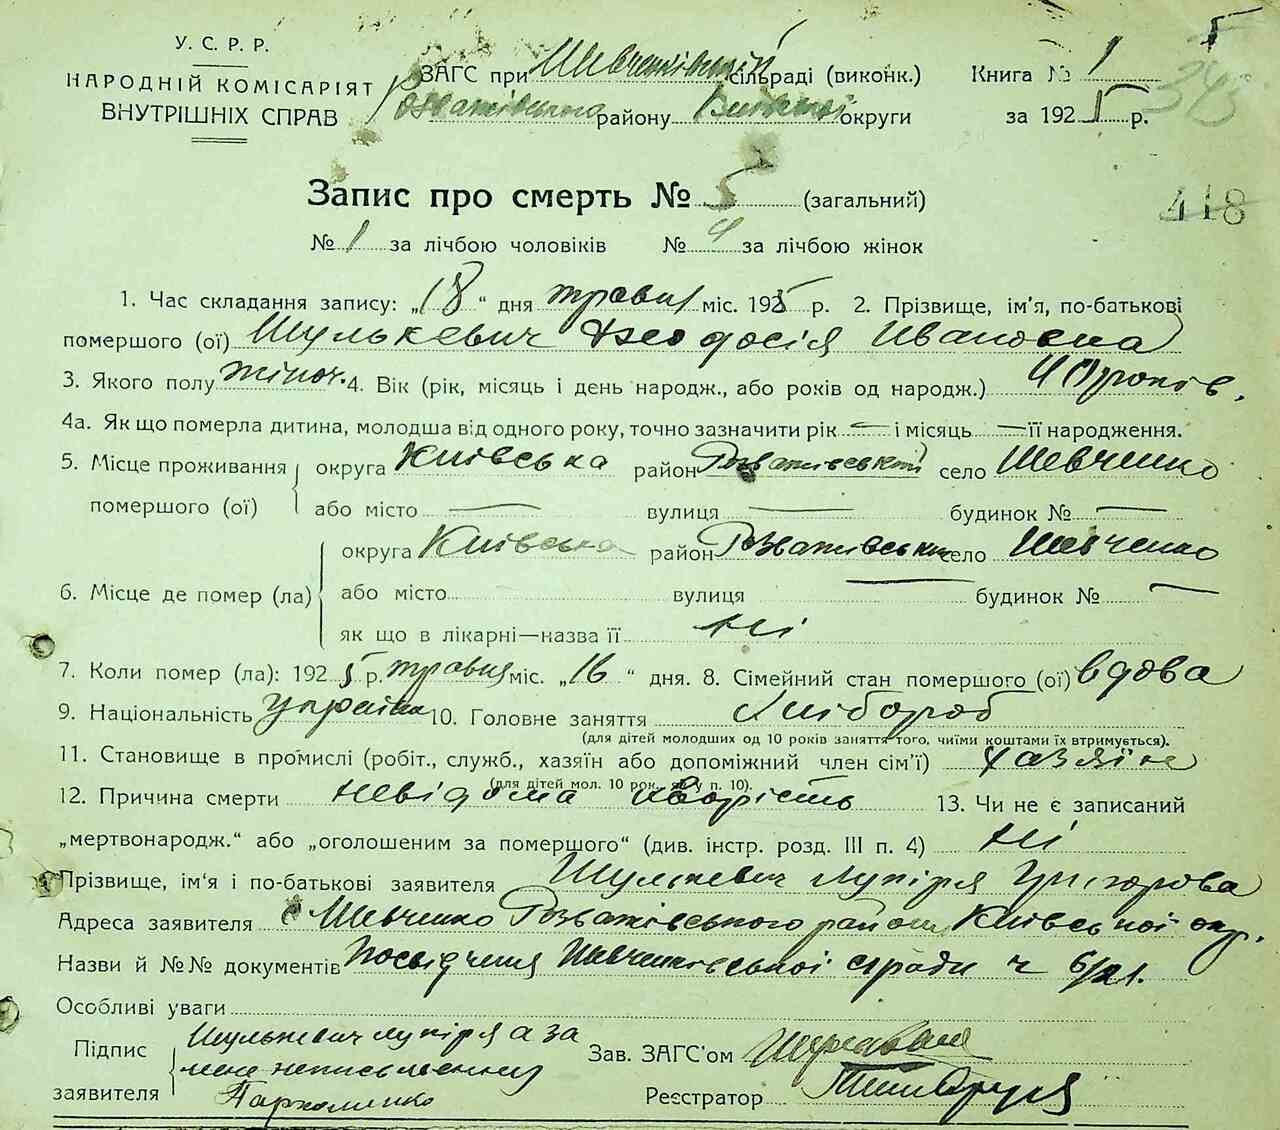 У. С. Р. Р.
НАРОДНІЙ КОМІСАРІЯТ
ВНУТРІШНІХ СПРАВ
ЗАГС при Шевченківській сільраді (виконк.) Книга № 1
Розважівського району Київської округи за 1925 р.
343
Запис про смерть № 5 (загальний)
418
№ 1 за лічбою чоловіків № 4 за лічбою жінок
1. Час складання запису: „18“ дня травня міс. 1925 р. 2. Прізвище, ім'я, по-батькові
помершого (ої) Шулькевич Феодосія Ивановна
3. Якого полу жіноч. 4. Вік (рік, місяць і день народж., або років од народж.) років.
4а. Як що померла дитина, молодша від одного року, точно зазначити рік — і місяць — її народження.
5. Місце проживання округа Київська район Розважівський село Шевченко
помершого (ої) або місто — вулиця — будинок № —
округа Київська район Розважівський село Шевченко
6. Місце де помер (ла) або місто вулиця — будинок № —
як що в лікарні—назва її Ні
7. Коли помер (ла): 1925 р. травня міс. „16“ дня. 8. Сімейний стан помершого (ої) вдова
9. Національність україн 10. Головне заняття хлібороб
(для дітей молодших од 10 років заняття того, чиїми коштами їх втримується).
11. Становище в промислі (робіт., служб., хазяїн або допоміжний член сім'ї) хазяїн
(для дітей мол. 10 рок. як у п. 10).
12. Причина смерти невідома хворість 13. Чи не є записаний
„мертвонародж.“ або „оголошеним за помершого“ (див. інстр. розд. III п. 4) Ні
Прізвище, ім'я і по-батькові заявителя Шулькевич Лукірія Григорова
Адреса заявителя с Шевченко Розважівського району Київської окр.
Назви й №№ документів Посвідчення Шевченківської сілради ч 6/21.
Особливі уваги
Підпис заявителя Шулькевич Лукіря а за
неї неписьменну
Пархоменко
Зав. ЗАГС'ом
Реєстратор